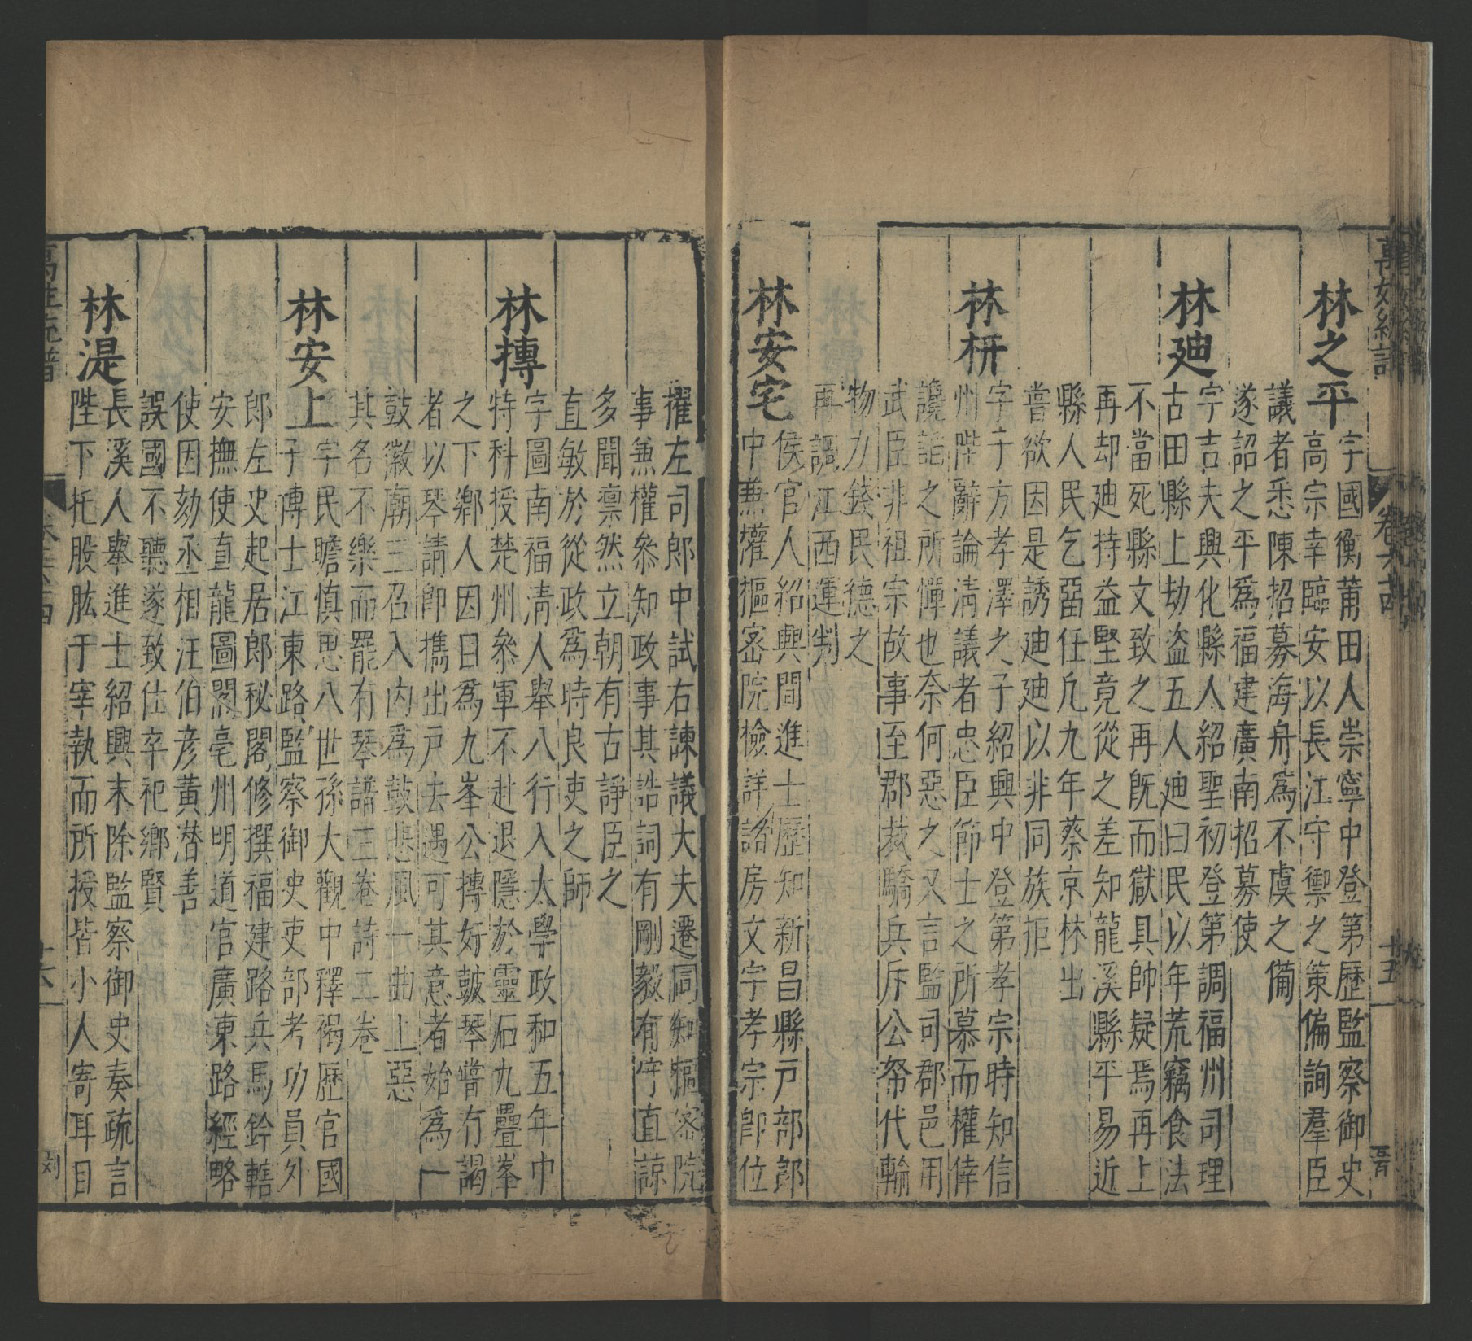 萬姓統譜
卷六十四
十五
林之平
字國衡莆田人崇寧中登第歷監察御史
高宗幸臨安以長江守禦之策偏詢羣臣
議者悉陳招募海舟爲不虞之備
遂詔之平爲福建廣南招募使
林廸
字吉夫興化縣人紹聖初登第調福州司理
古田縣上劫盗五人廸曰民以年荒竊食法
不當死縣文致之再旣而獄具帥疑焉再上
再却廸持益堅竟從之差知龍溪縣平易近
縣人民乞畱任凢九年蔡京林出
嘗欲因是誘廸廸以非同族拒
林枅
字子方孝澤之子紹興中登第孝宗時知信
州陛辭論淸議者忠臣節士之所慕而權倖
讒諂之所憚也奈何惡之又言監司郡邑用
武臣非祖宗故事至郡裁驕兵斥公帑代輸
物力錢民德之
再調江西運判
林安宅
侯官人紹興間進士歷知新昌縣戸部郎
中兼權樞宻院檢詳諸房文字孝宗卽位
擢左司郎中試右諫議大夫遷同知樞宻院
事兼權參知政事其誥詞有剛毅有守直諒
多聞禀然立朝有古諍臣之
直敏於從政爲時良吏之師
林摶
字圖南福清人舉八行入太學政和五年中
特科授楚州叅軍不赴退隱於靈石九疊峯
之下鄉人因目爲九峯公摶好皷琴嘗有謁
者以琴請卽攜出戸去遇可其意者始爲一
鼓徽廟三召入内爲鼓悲風一曲上惡
其名不樂而罷有琴譜三卷詩二卷
林安上
字民瞻慎思八世孫大觀中釋褐歷官國
子博士江東路監察御史吏部考功員外
郎左史起居郎秘閣修撰福建路兵馬鈐轄
安撫使直龍圖閣亳州明道宮廣東路經略
使因劾丞相汪伯彦黄潜善
誤國不聽遂致仕卒祀鄉賢
林湜
長溪人舉進士紹興末除監察御史奏疏言
陛下托股肱于宰執而所授皆小人寄耳目
萬姓統譜
卷六十四
十六